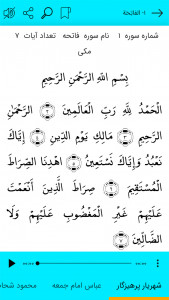 ١- الفاتحة
شماره سوره ١ نام سوره فاتحه تعداد آیات ٧
مکی
بِسْمِ اللَّهِ الرَّحْمَنِ الرَّحِيمِ
الْحَمْدُ لِلَّهِ رَبِّ الْعَالَمِينَ ﴿٢﴾ الرَّحْمَنِ
الرَّحِيمِ ﴿٣﴾ مَالِكِ يَوْمِ الدِّينِ ﴿٤﴾ إِيَّاكَ
نَعْبُدُ وَإِيَّاكَ نَسْتَعِينُ ﴿٥﴾ اهْدِنَا الصِّرَاطَ
الْمُسْتَقِيمَ ﴿٦﴾ صِرَاطَ الَّذِينَ أَنْعَمْتَ
عَلَيْهِمْ غَيْرِ الْمَغْضُوبِ عَلَيْهِمْ وَلَا
الضَّالِّينَ ﴿٧﴾
شهریار پرهیزگار عباس امام جمعه محمود شحا